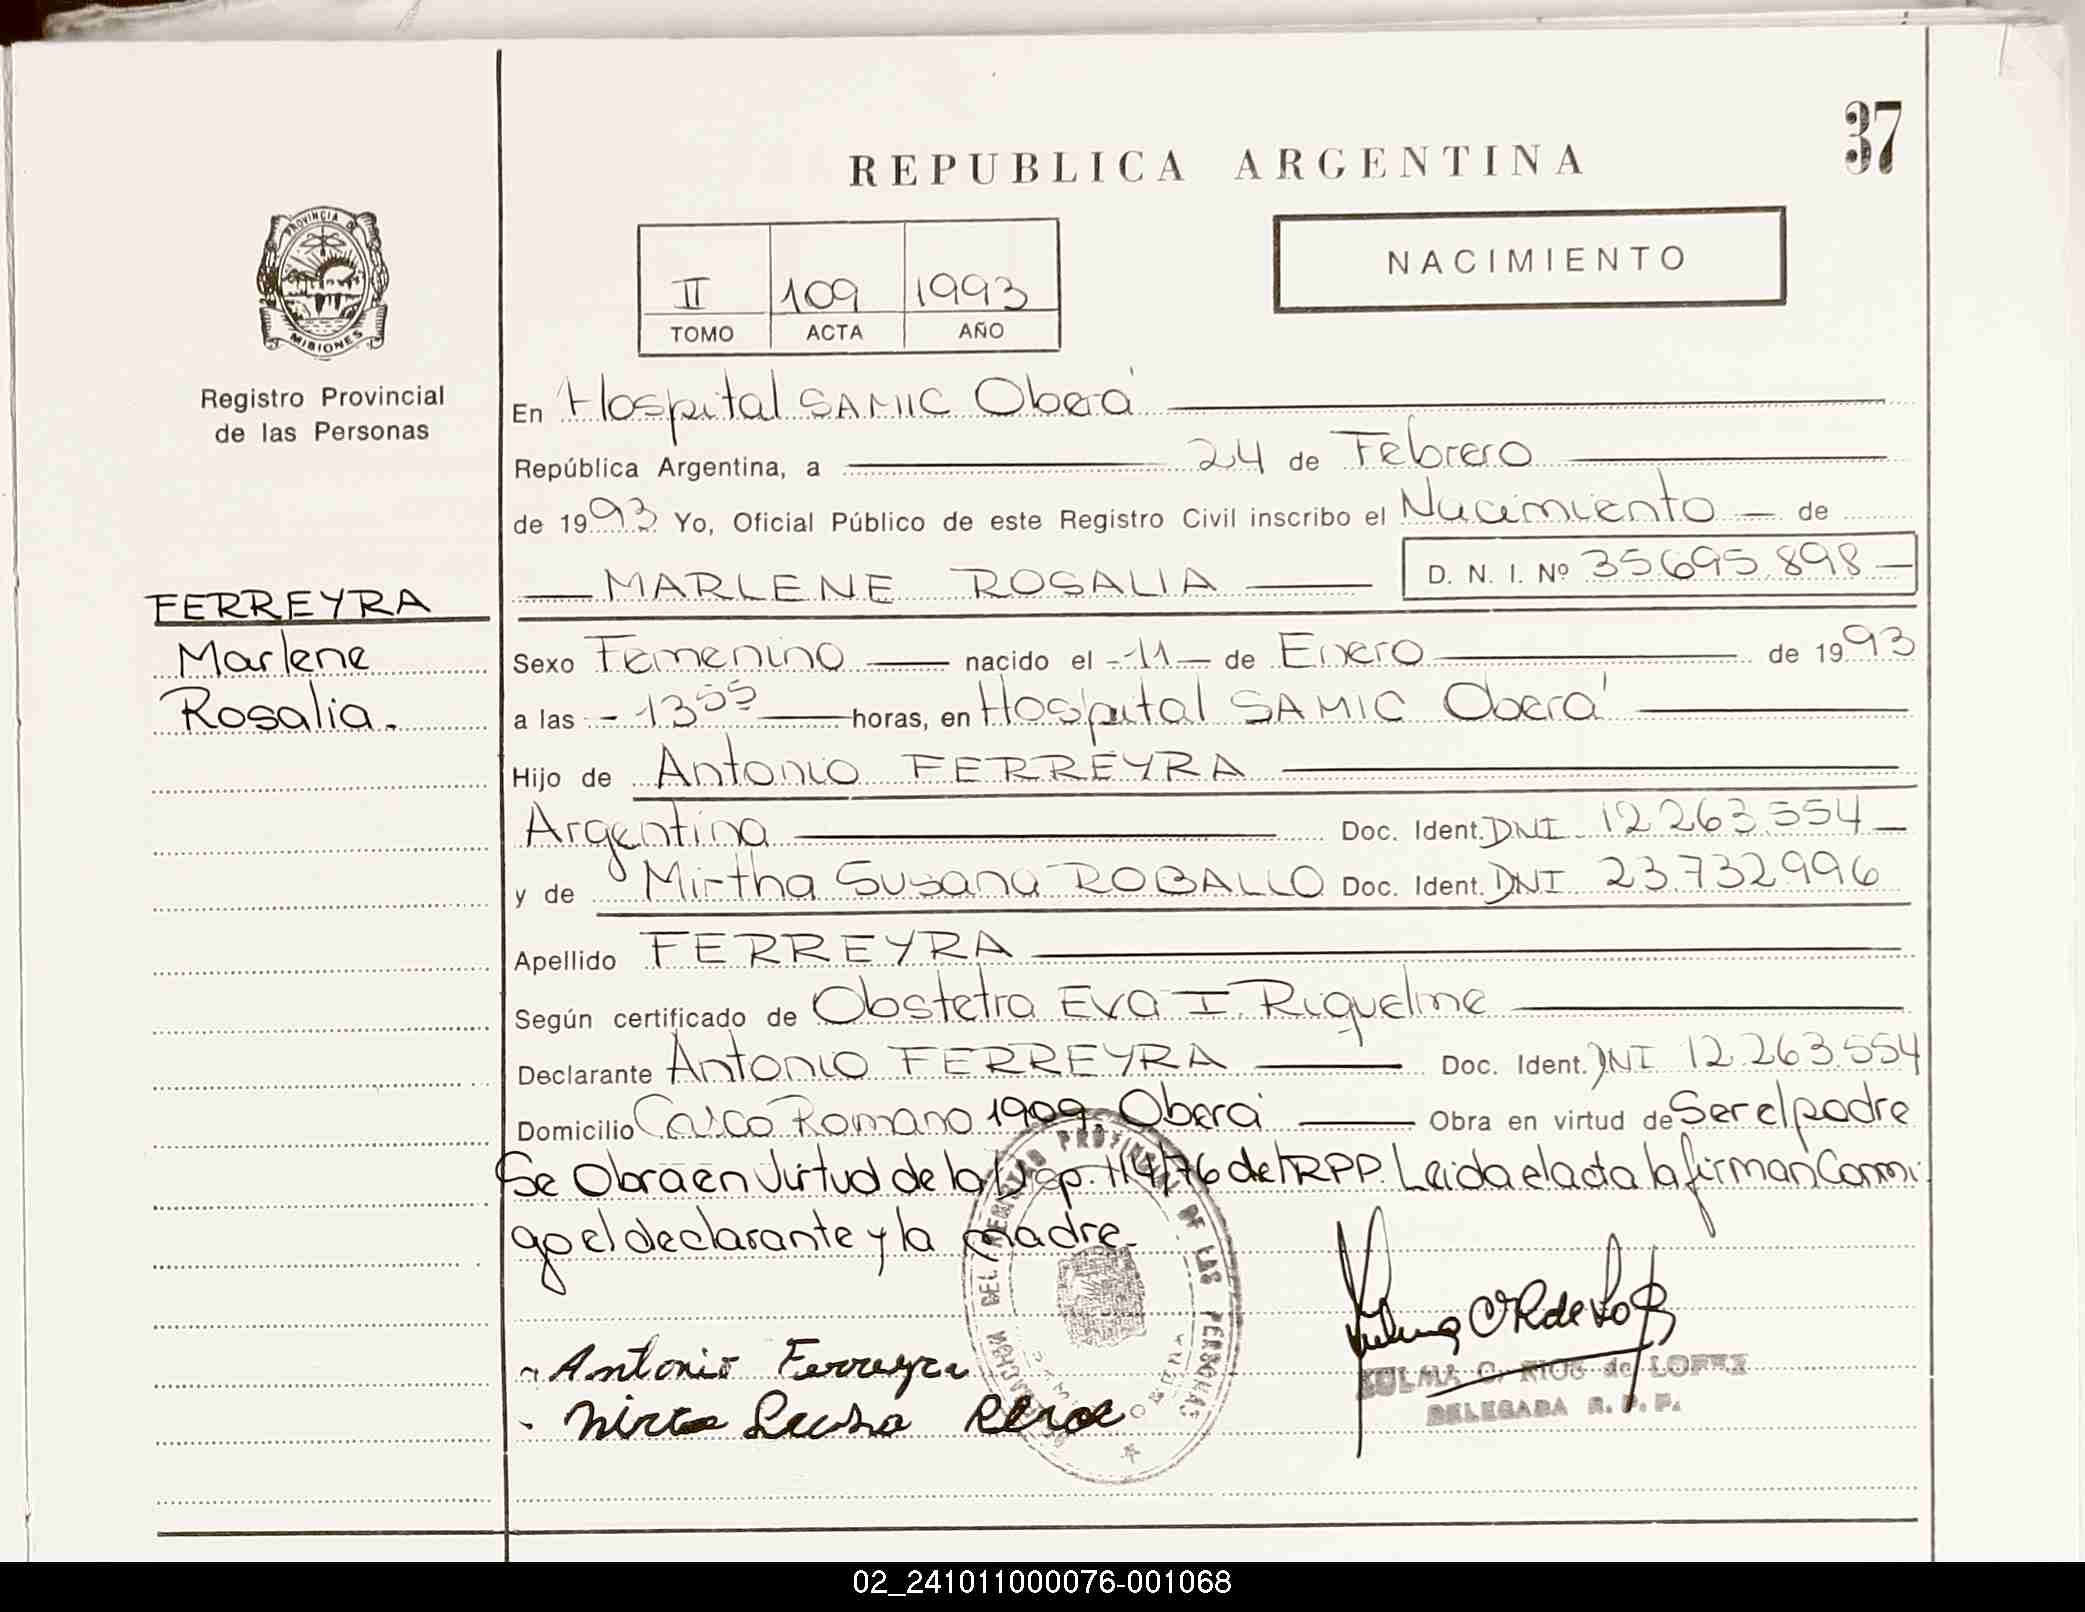 37
REPUBLICA ARGENTINA
PROVINCIA DE
MISIONES
Registro Provincial
de las Personas
NACIMIENTO
II 109 1993
TOMO ACTA AÑO
En Hospital SAMIC Oberá
República Argentina, a 24 de Febrero
de 1993 Yo, Oficial Público de este Registro Civil inscribo el Nacimiento de
MARLENE ROSALIA D. N. I. Nº 35695.898
FERREYRA
Marlene
Rosalia.
Sexo Femenino nacido el 11 de Enero de 1993
a las 13 55 horas, en Hospital SAMIC Oberá
Hijo de Antonio FERREYRA
Argentina Doc. Ident. DNI 12.263.554
y de Mirtha Susana ROBALLO Doc. Ident. DNI 23.732.996
Apellido FERREYRA
Según certificado de Obstetra Eva I. Riquelme
Declarante Antonio FERREYRA Doc. Ident. DNI 12.263.554
Domicilio Casco Romano 1909, Oberá Obra en virtud de Ser el padre
Se Obra en Virtud de la Disp. 114/76 del RPP. Leida el acta la firman Conmi
go el declarante y la madre.
DEL REGISTRO PROVINCIAL DE LAS PERSONAS
Antonio Ferreyra
ZULMA C. RIOS de LOPEZ
DELEGADA R. P. P.
02_241011000076-001068